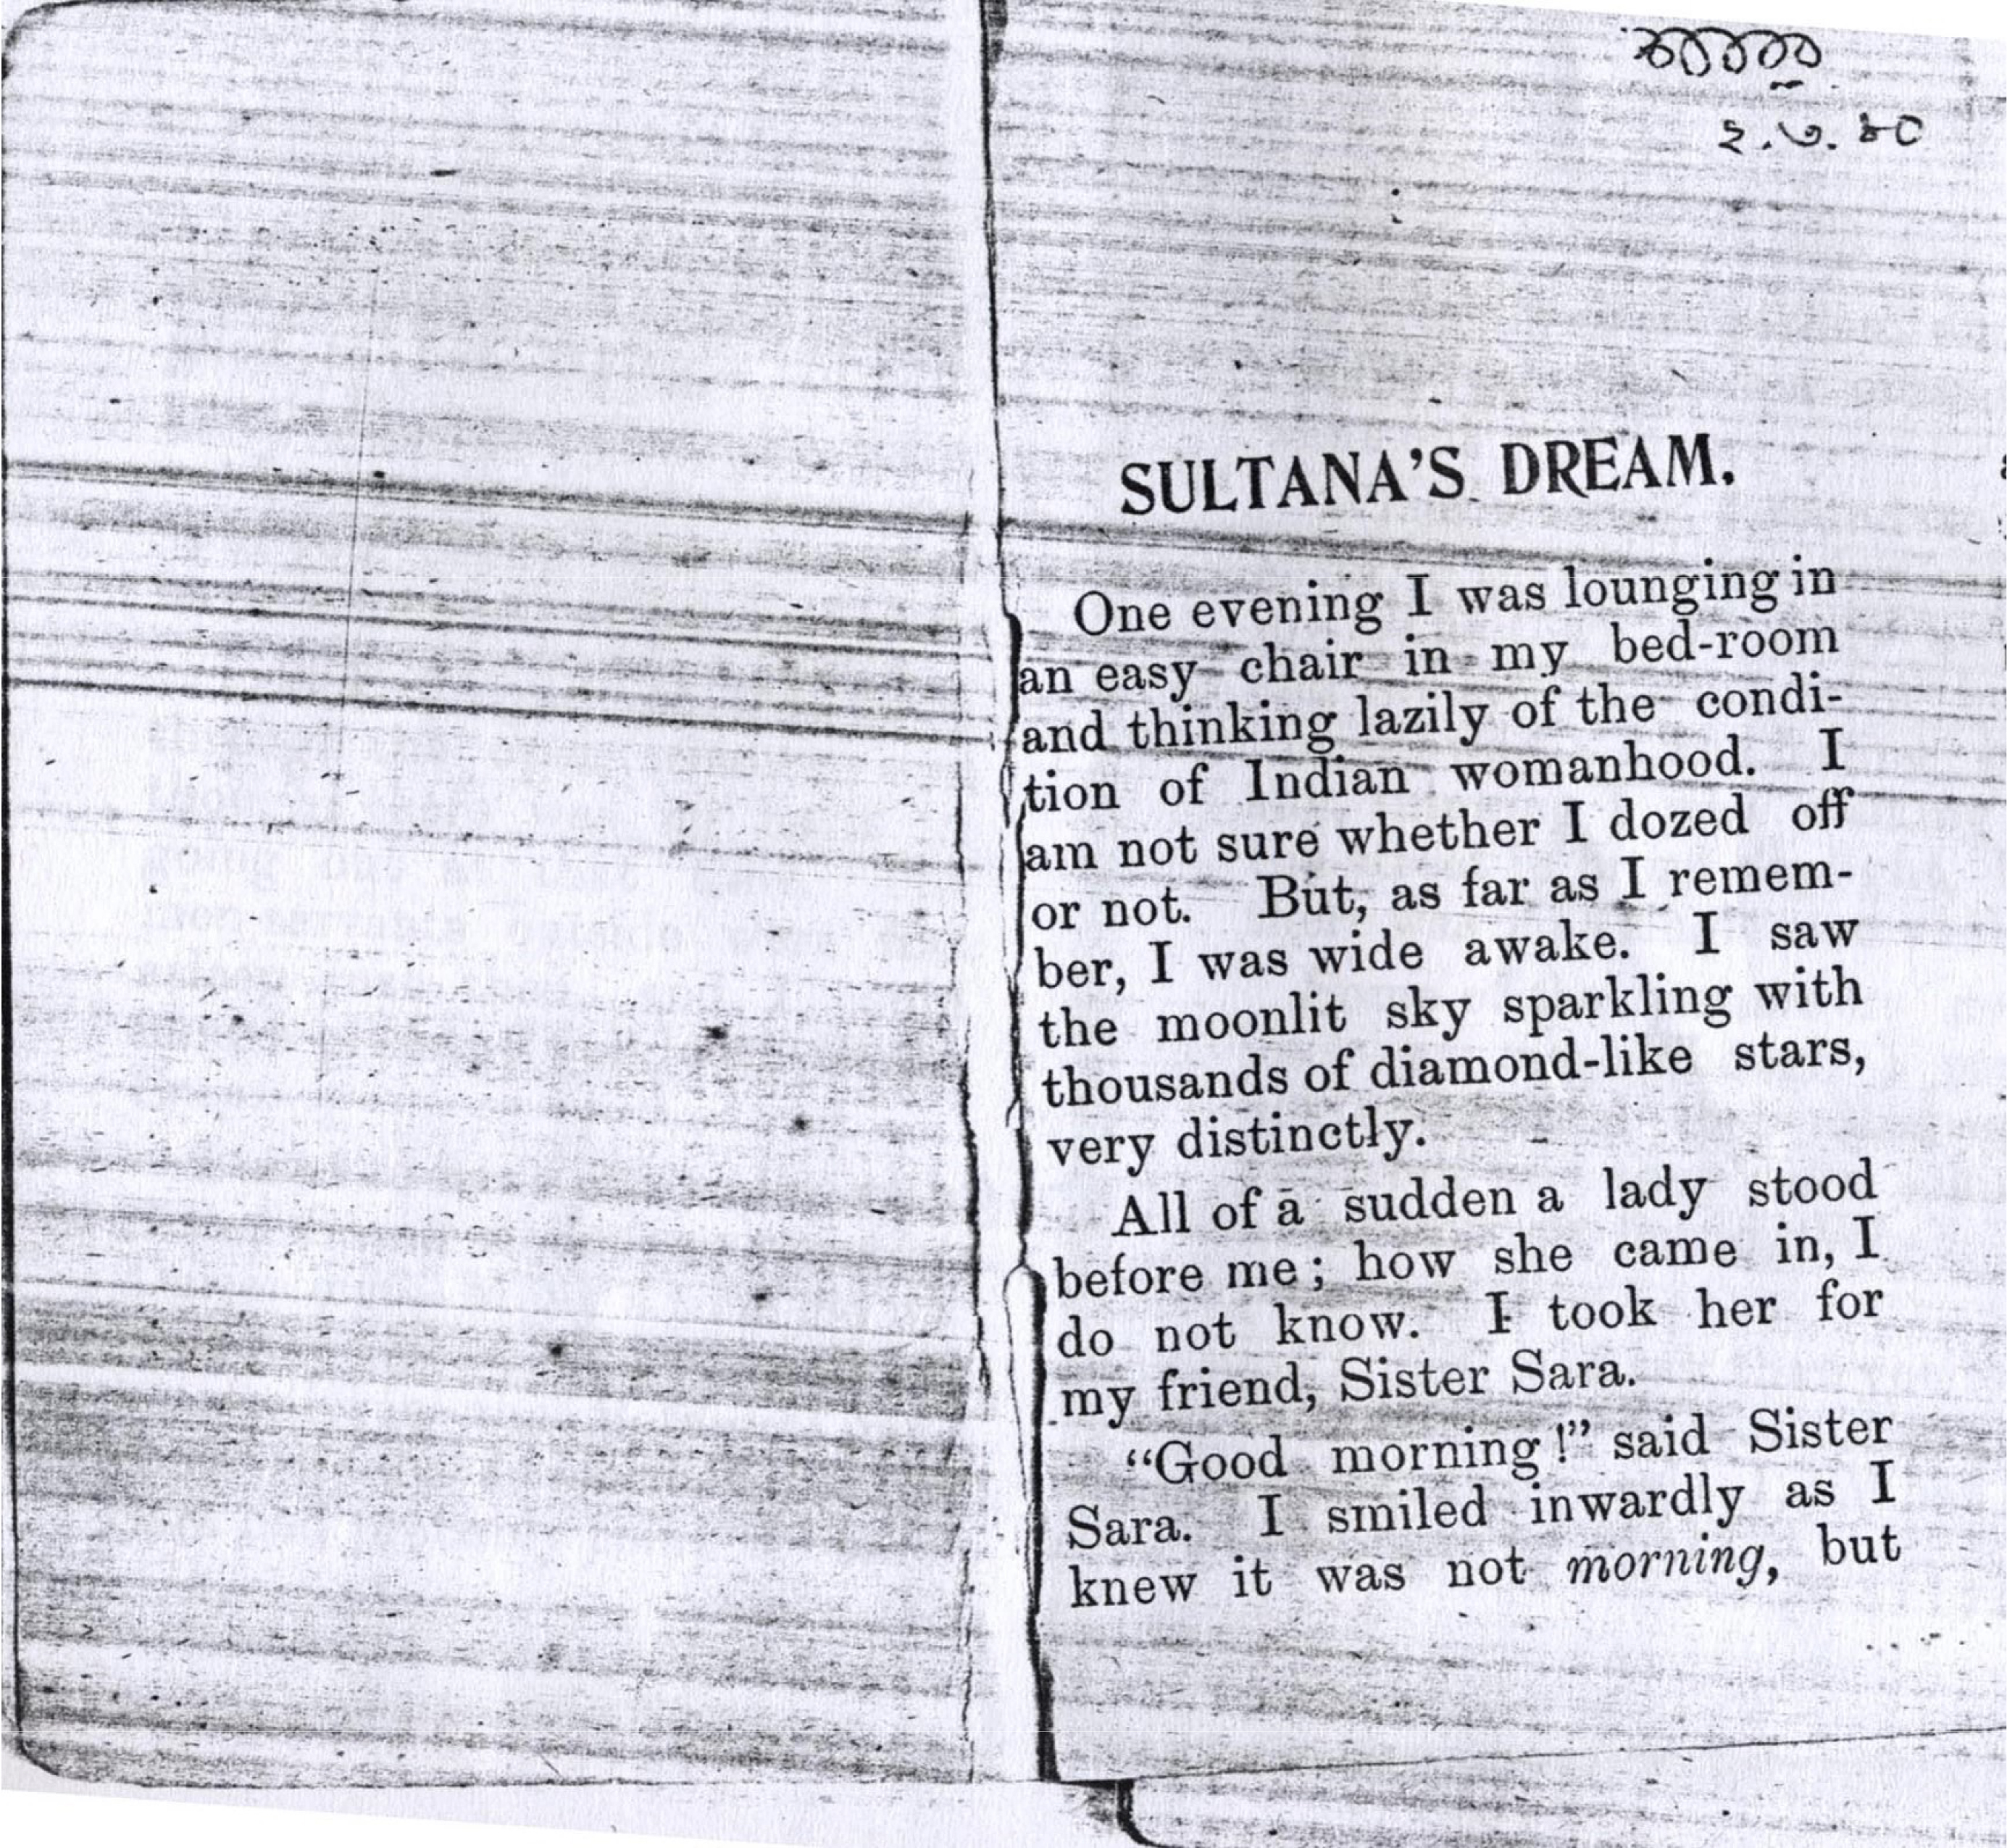 ২.৩.৮০
SULTANA'S DREAM.
One evening I was lounging in
an easy chair in my bed-room
and thinking lazily of the condi-
tion of Indian womanhood. I
am not sure whether I dozed off
or not. But, as far as I remem-
ber, I was wide awake. I saw
the moonlit sky sparkling with
thousands of diamond-like stars,
very distinctly.
All of a sudden a lady stood
before me; how she came in, I
do not know. I took her for
my friend, Sister Sara.
“Good morning!” said Sister
Sara. I smiled inwardly as I
knew it was not morning, but